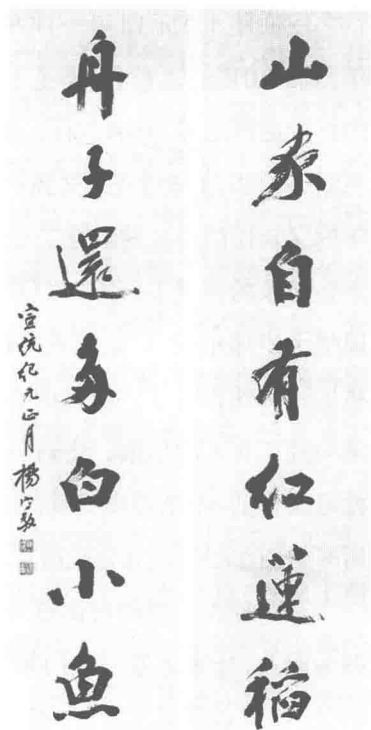 山家自有紅蓮稻
舟子還多白小魚
宣統紀元正月 楊守敬